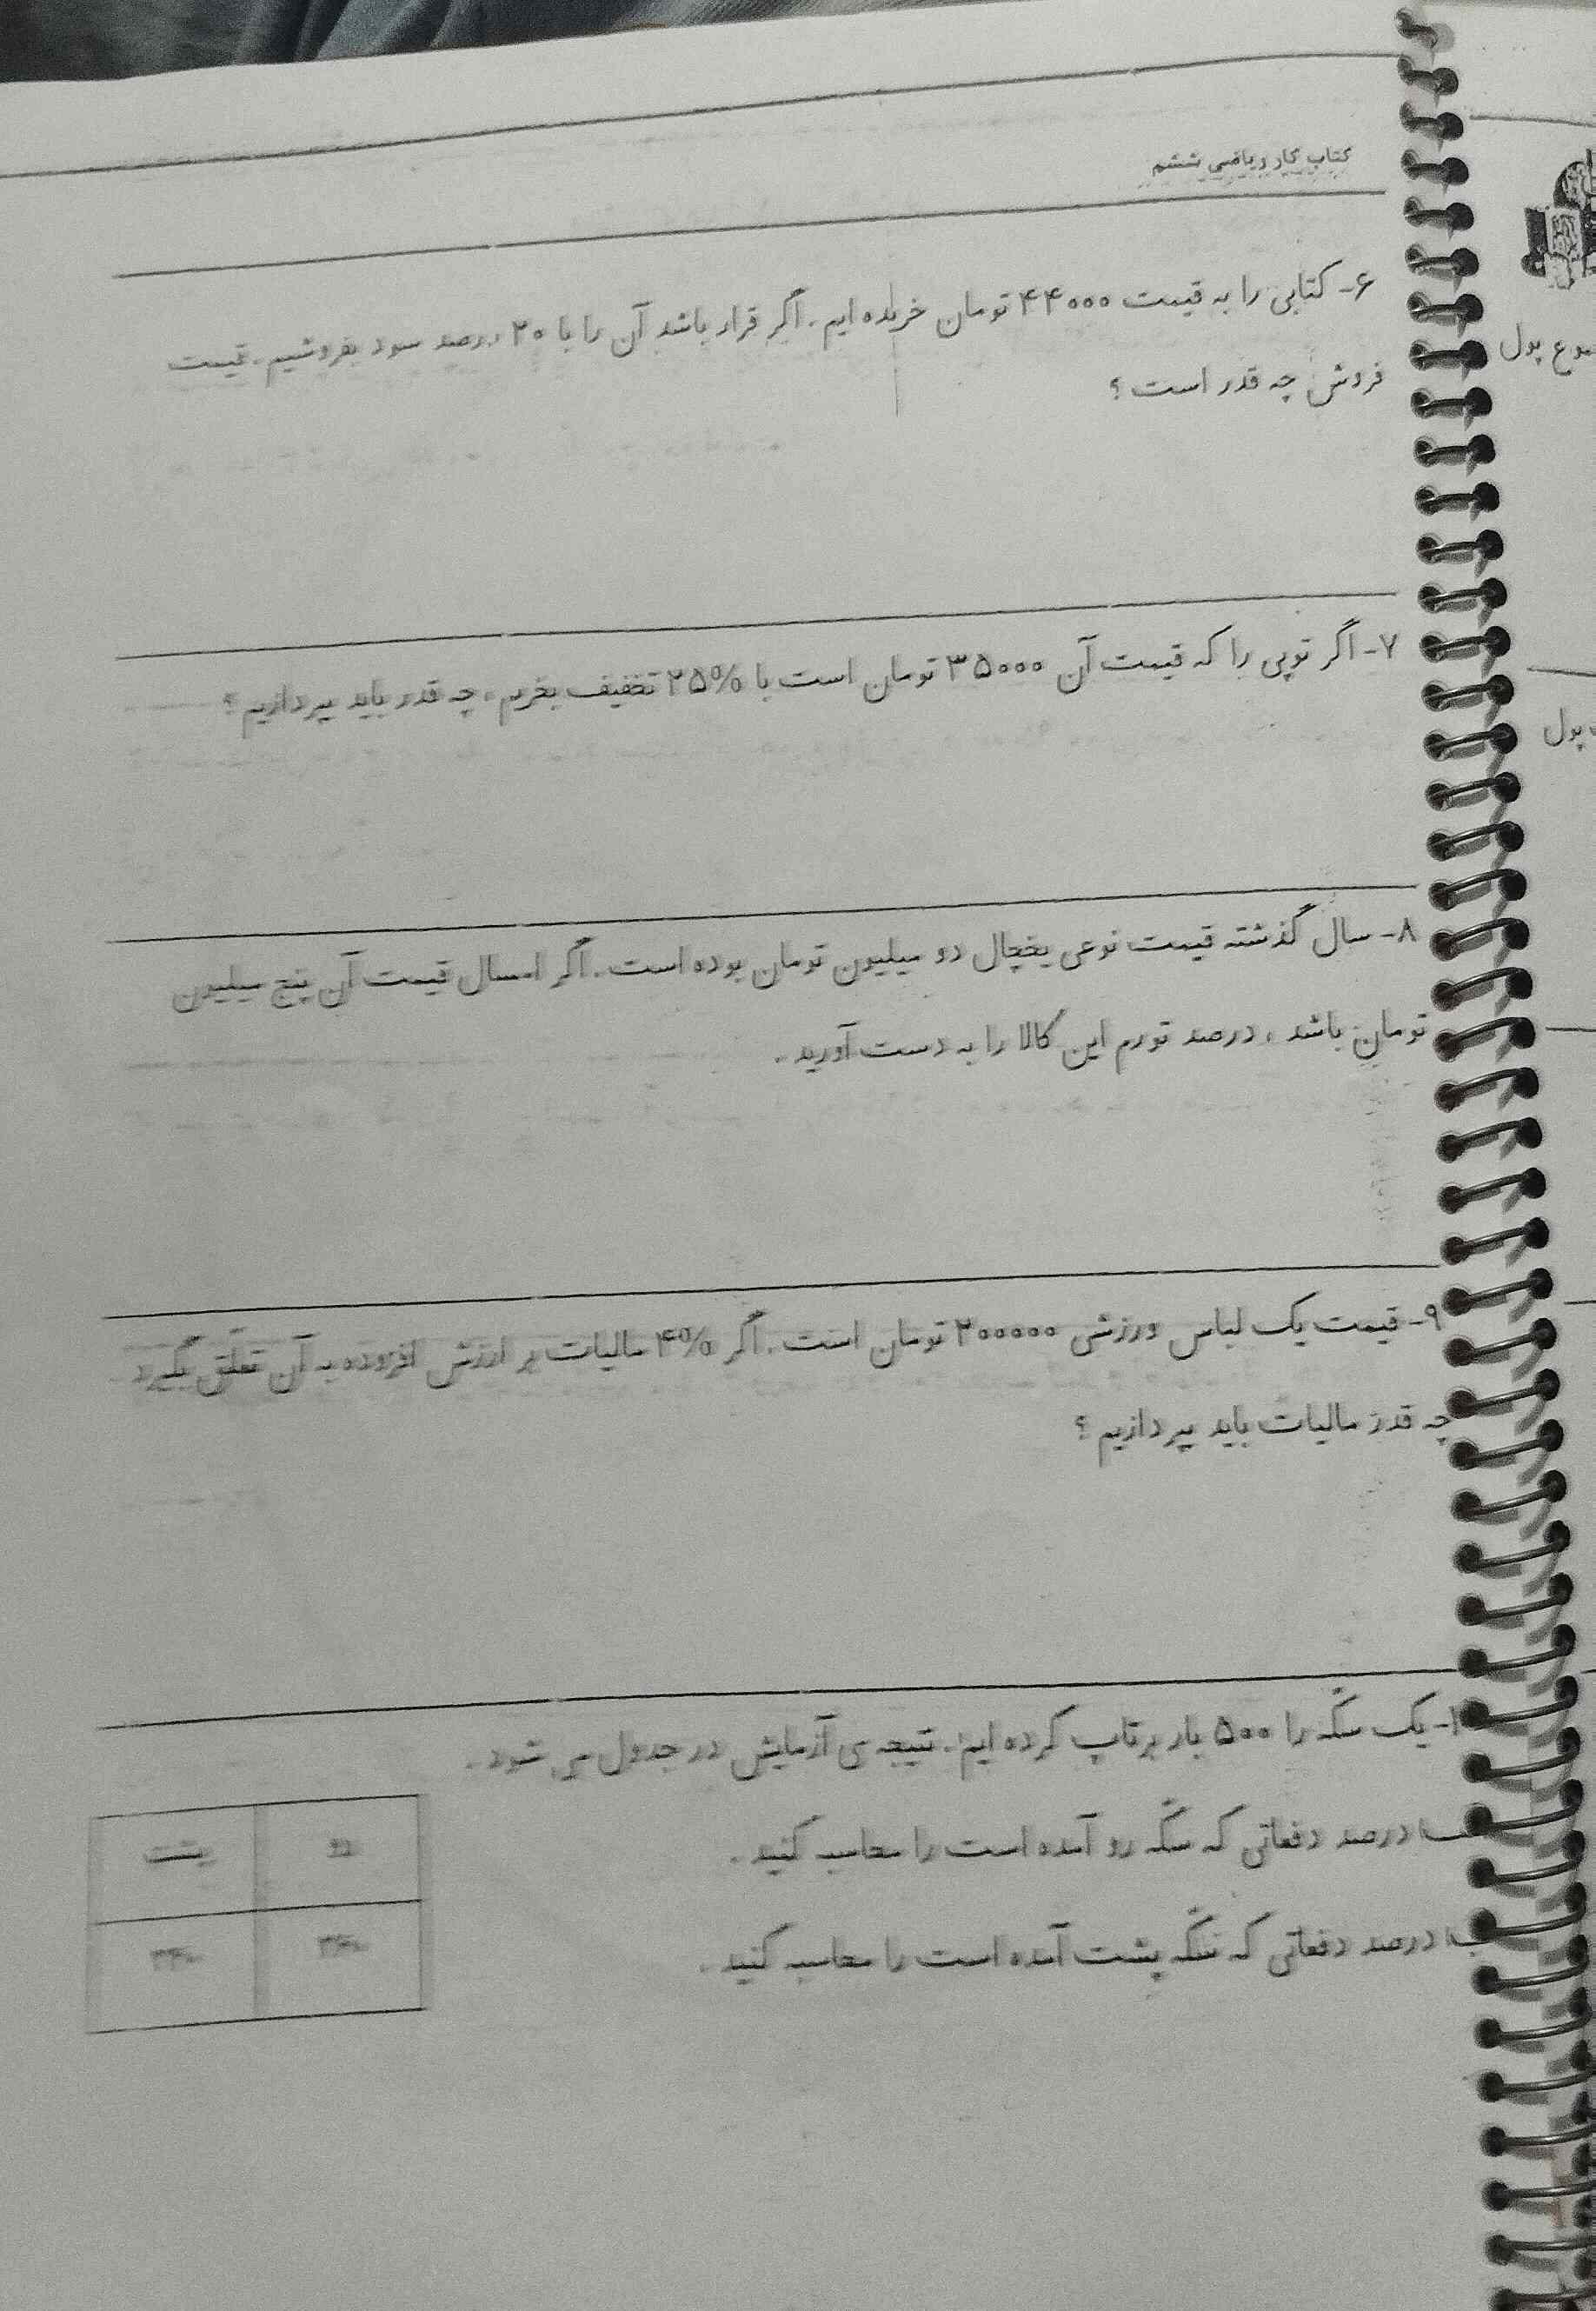 کتاب کار ریاضی ششم
۶- کتابی را به قیمت ۴۴۰۰۰ تومان خریده ایم. اگر قرار باشد آن را با ۲۰ درصد سود بفروشیم، قیمت
فروش چه قدر است ؟
۷- اگر توپی را که قیمت آن ۳۵۰۰۰ تومان است با ۲۵% تخفیف بخریم، چه قدر باید بپردازیم ؟
۸- سال گذشته قیمت نوعی یخچال دو میلیون تومان بوده است. اگر امسال قیمت آن پنج میلیون
تومان باشد ، درصد تورم این کالا را به دست آورید.
۹- قیمت یک لباس ورزشی ۲۰۰۰۰۰ تومان است. اگر ۴% مالیات بر ارزش افزوده به آن تعلق بگیرد
چه قدر مالیات باید بپردازیم ؟
یک سکّه را ۵۰۰ بار پرتاپ کرده ایم. نتیجه ی آزمایش در جدول می شود.
درصد دفعاتی که سکّه رو آمده است را محاسبه کنید.
درصد دفعاتی که سکّه پشت آمده است را محاسبه کنید.
رو پشت
پول
پول